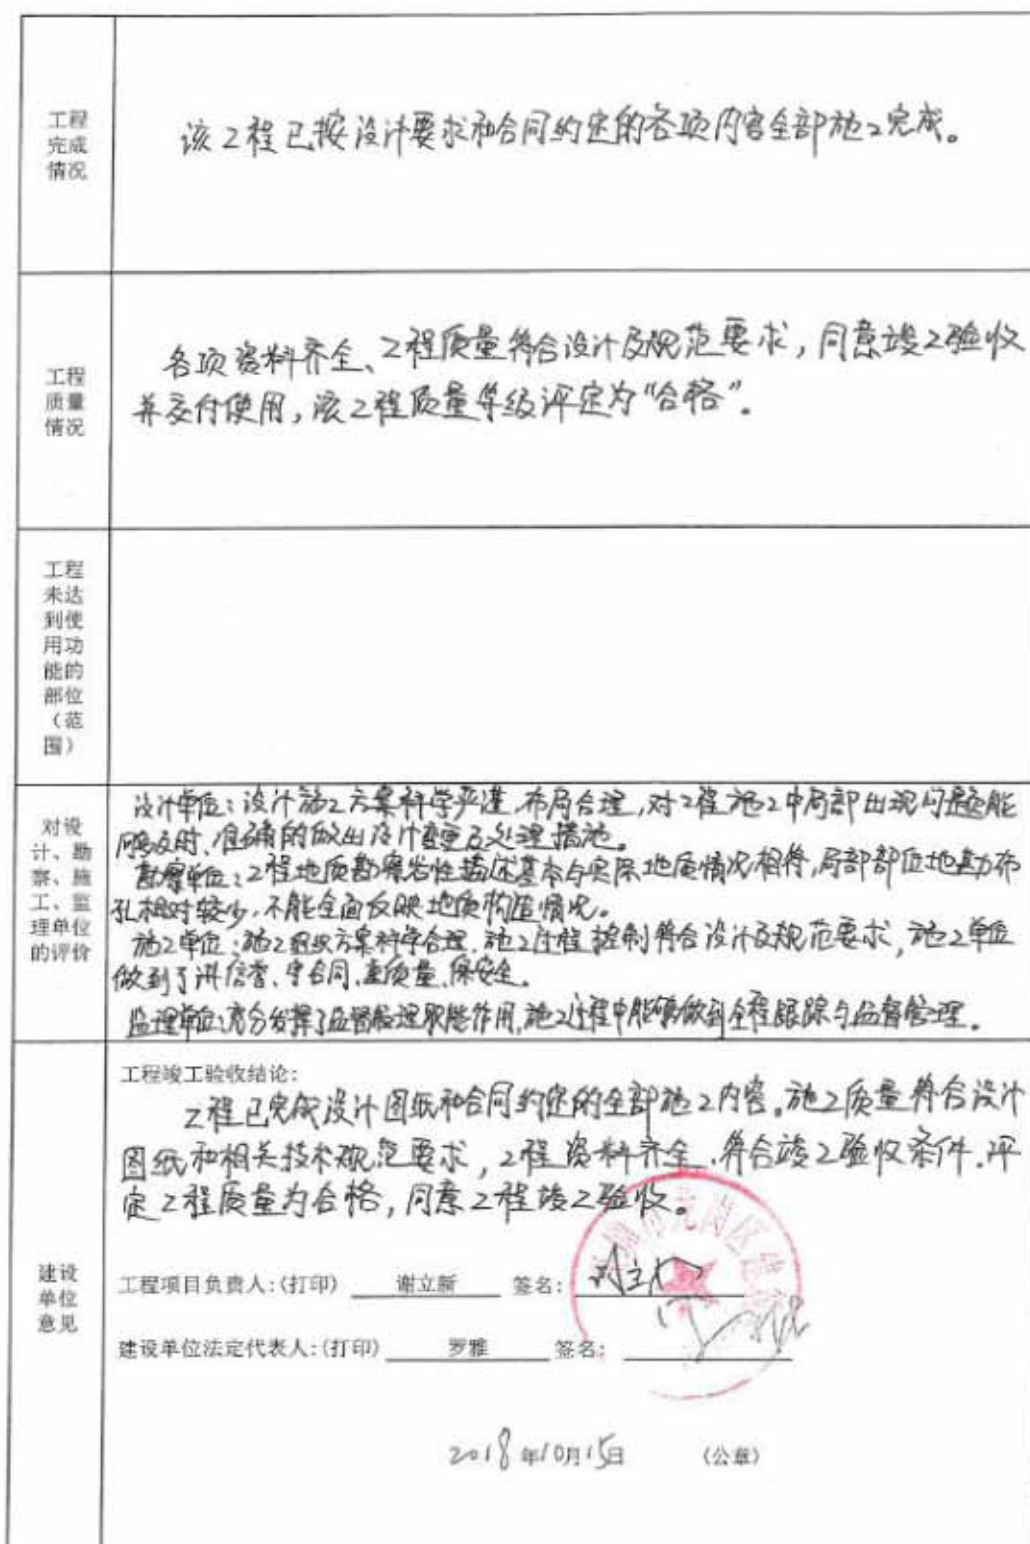 工程
完成
情况
该工程已按设计要求和合同约定的各项内容全部施工完成。
工程
质量
情况
各项资料齐全、工程质量符合设计及规范要求，同意竣工验收
并交付使用，该工程质量等级评定为“合格”。
工程
未达
到使
用功
能的
部位
（范
围）
对设
计、勘
察、施
工、监
理单位
的评价
设计单位：设计施工方案科学严谨，布局合理，对工程施工中局部出现问题能
够及时、准确的做出设计变更及处理措施。
勘察单位：工程地质勘察岩性描述基本与实际地质情况相符，局部部位地勘布
孔相对较少，不能全面反映地质构造情况。
施工单位：施工组织方案科学合理，施工过程控制符合设计及规范要求，施工单位
做到了讲信誉、守合同、重质量、保安全。
监理单位：充分发挥了监督管理职能作用，施工过程中能够做到全程跟踪与监督管理。
建设
单位
意见
工程竣工验收结论：
工程已完成设计图纸和合同约定的全部施工内容。施工质量符合设计
图纸和相关技术规范要求，工程资料齐全，符合竣工验收条件。评
定工程质量为合格，同意工程竣工验收。
工程项目负责人：(打印) 谢立新 签名：
建设单位法定代表人：(打印) 罗雅 签名：
2018年10月15日 （公章）